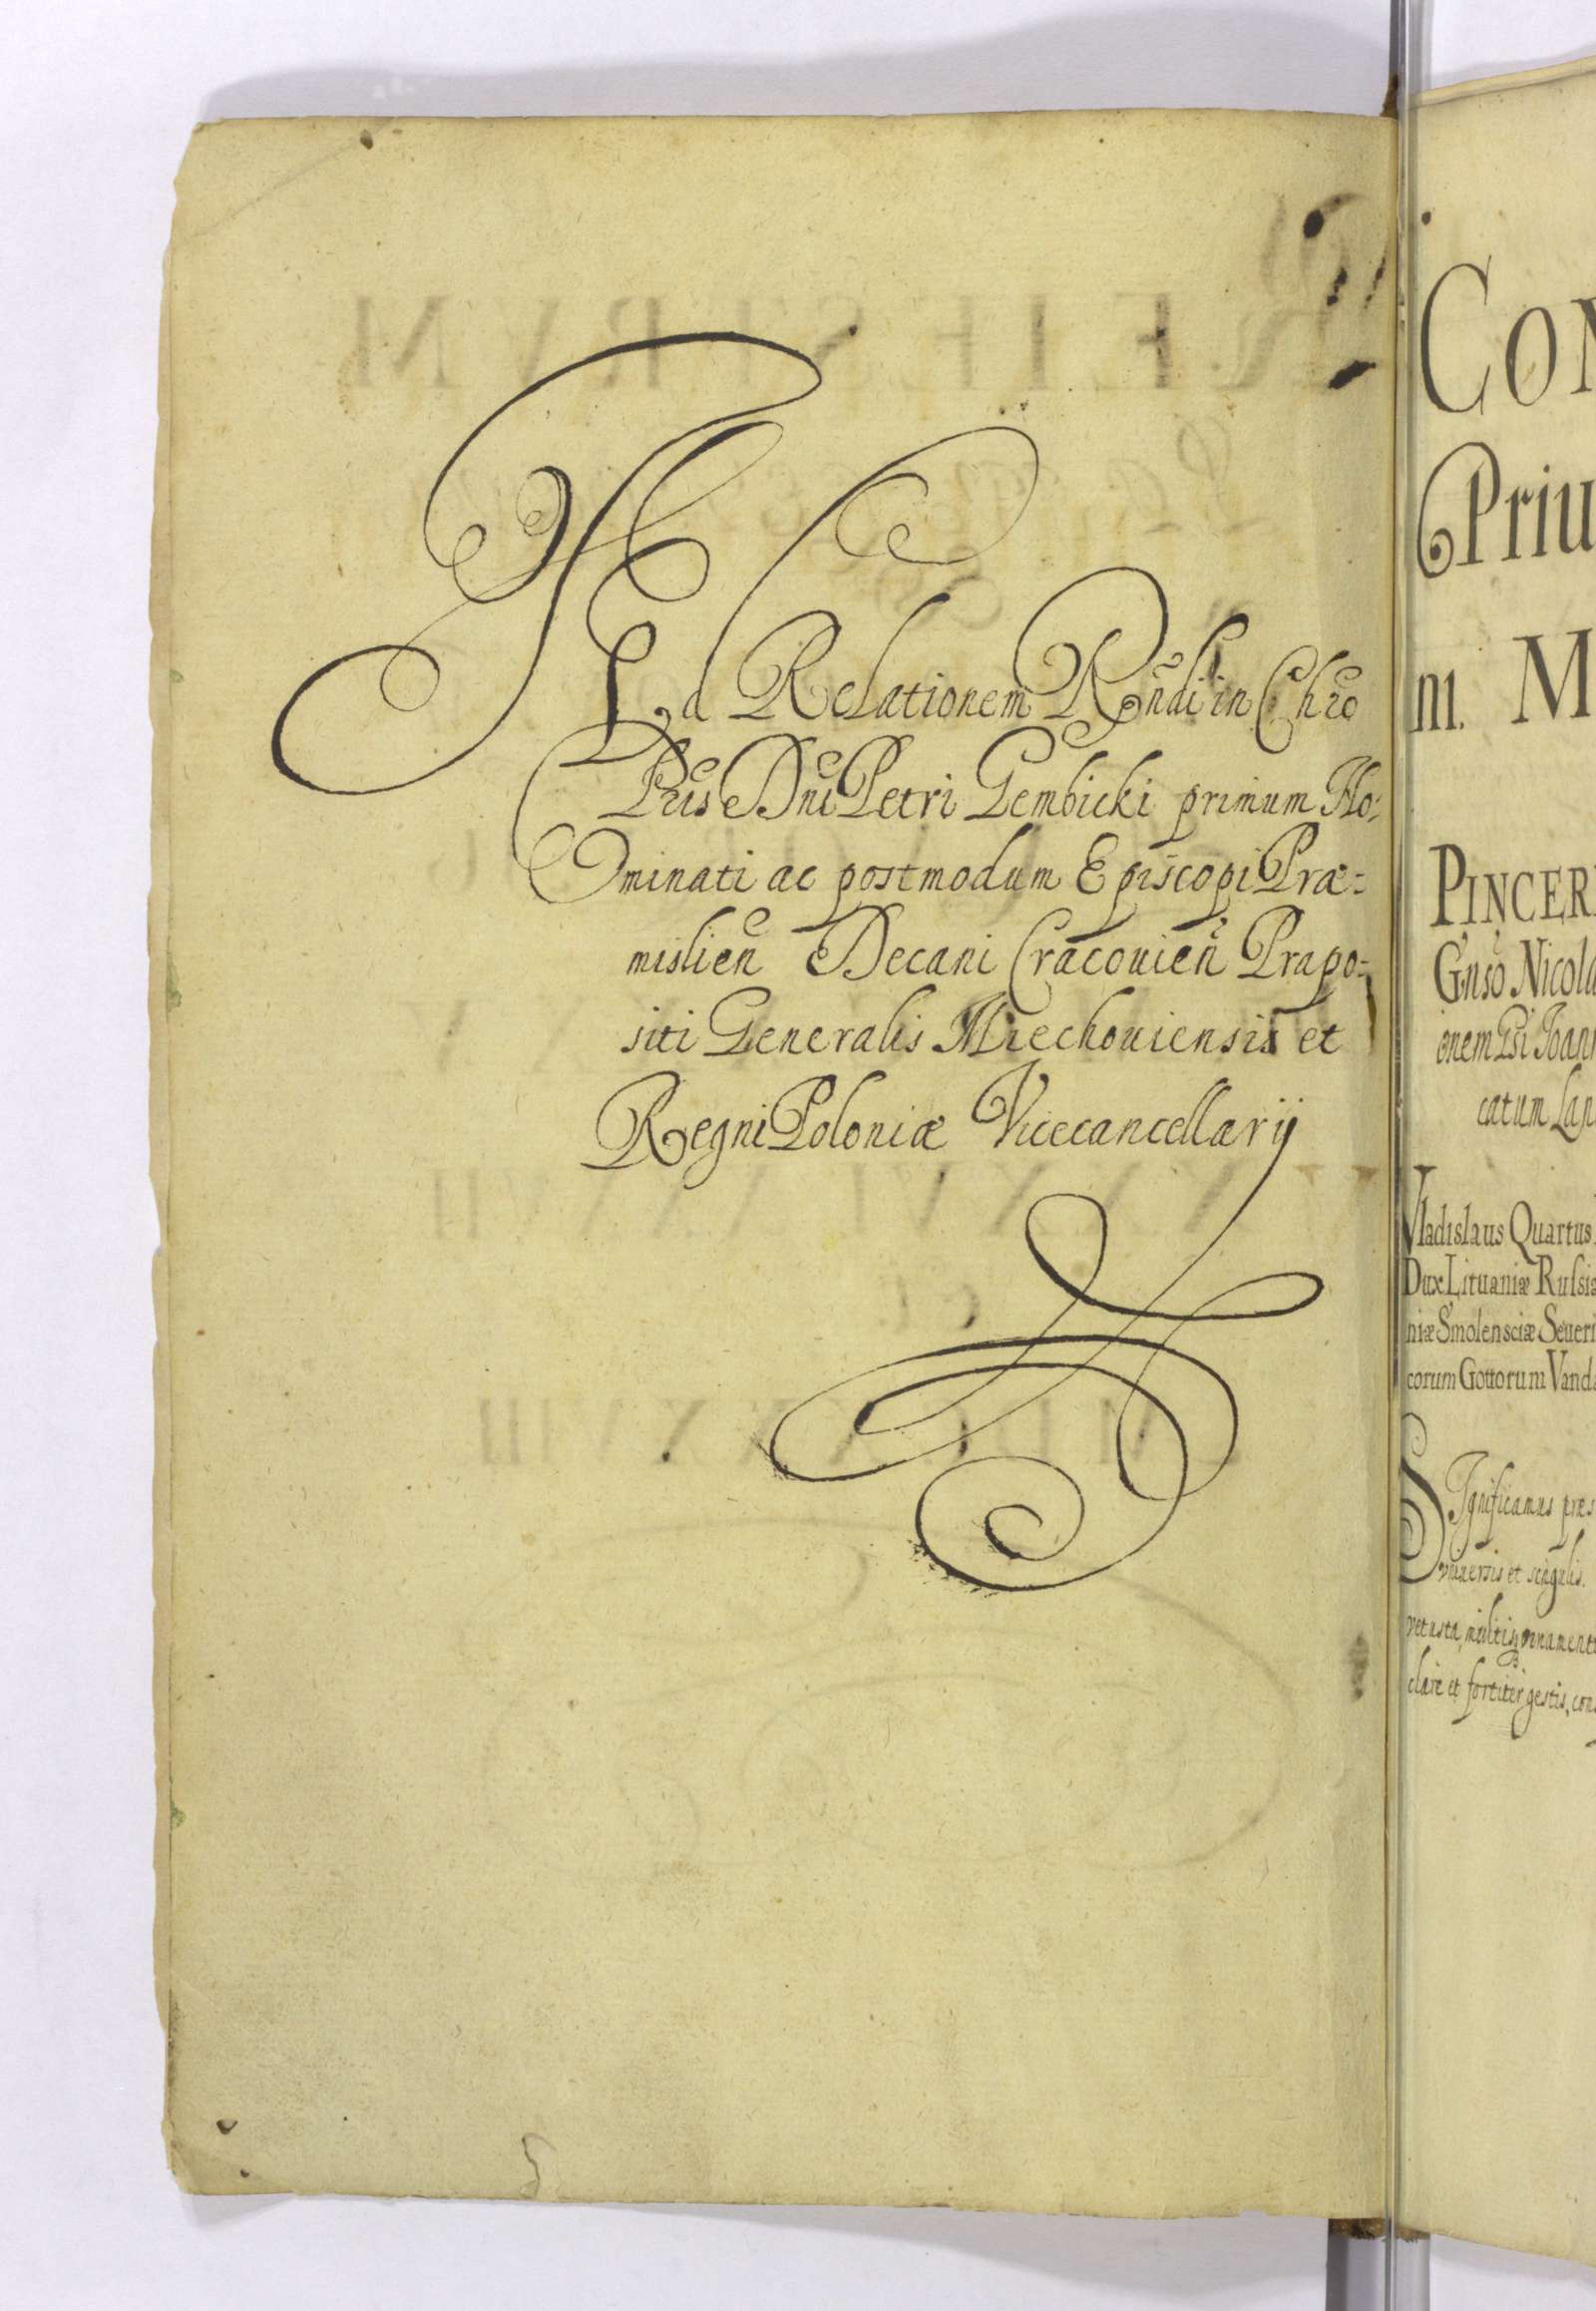 Ad Relationem Rñdi in Chro
Pris Dni Petri Gembicki primum No:
minati ac postmodum Episcopi Præ:
mislieñ Decani Cracouieñ Præpo:
siti Generalis Miechouiensis et
Regni Poloniæ Vicecancellarij
CON
Priu
m. M
PINCER
Gnso Nicola
onem Joann
catum Lan
Vladislaus Quartus
Dux Lituaniæ Rusia
niæ Smolensciæ Seueri
corum Gottorum Vanda
Significamus præs
vniuersis et singulis.
vetusta, ornamenta
clare et fortiter gestis, con